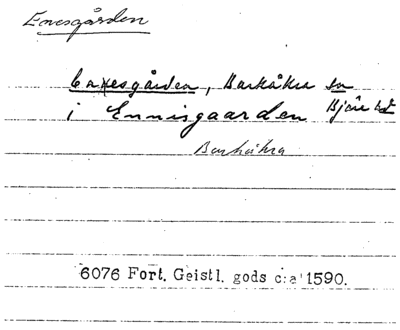 Enesgården
Enesgården, Barkåkra sn
i Ennisgaarden Bjäre hd
Barkåkra
6076 Fort. Geistl. gods c:a 1590.